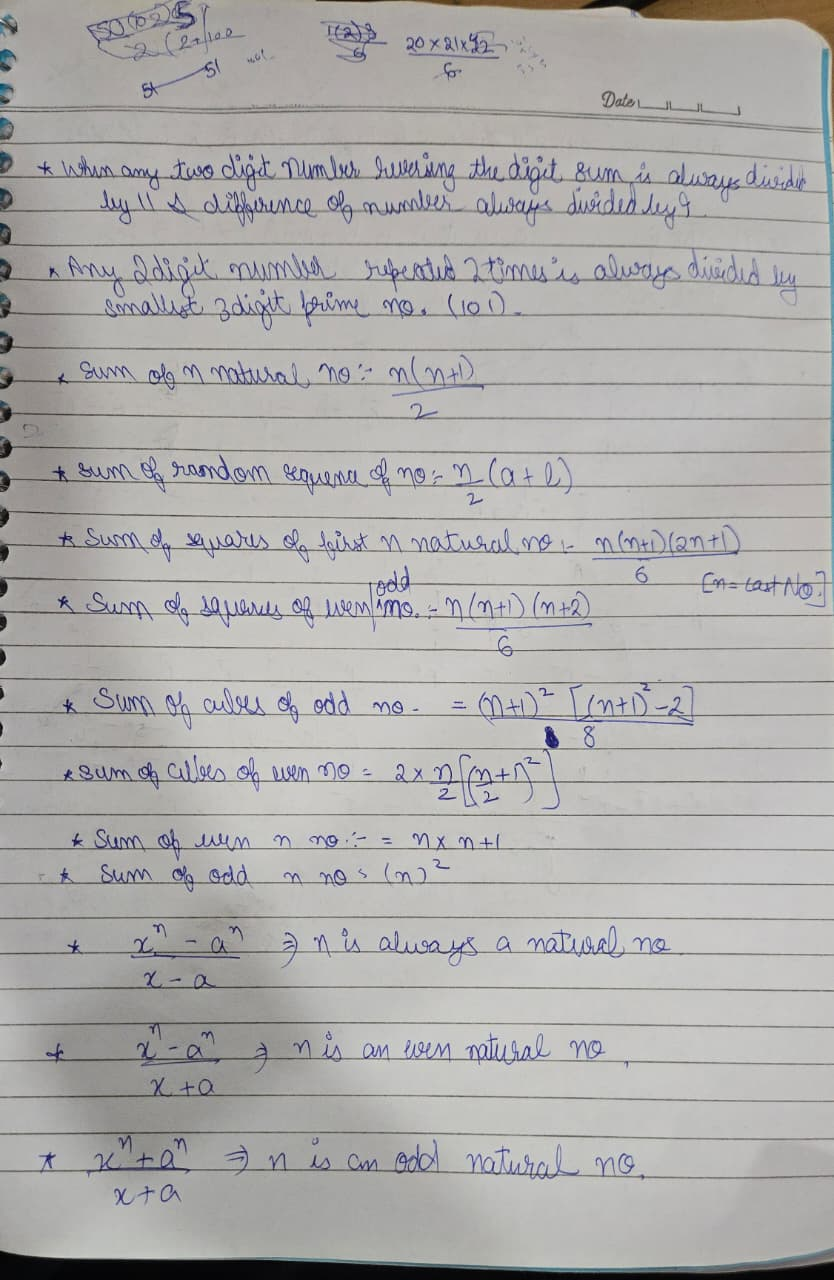 50(102)5
2 (2+100
51 51
1(2)3 20×21×22
6 6
Date
* When any two digit number reversing the digit sum is always divided
by 11 & difference of number always divided by 9.
* Any 2 digit number repeated 2 times is always divided by
smallest 3 digit prime no. (101).
* Sum of n natural no :- n(n+1)
2
* Sum of random sequence of no = n/2 (a+l)
* Sum of squares of first n natural no :- n(n+1)(2n+1)
6 [n = Last No.]
* Sum of squares of even/odd no. = n(n+1)(n+2)
6
* Sum of cubes of odd no - = (n+1)² [(n+1)²-2]
8
* Sum of cubes of even no = 2 × n/2 [(n/2+1)²]
* Sum of even n no :- = n × n+1
* Sum of odd n no = (n)²
* xⁿ - aⁿ ⇒ n is always a natural no
x - a
* xⁿ - aⁿ ⇒ n is an even natural no.
x + a
* xⁿ + aⁿ ⇒ n is an odd natural no.
x + a